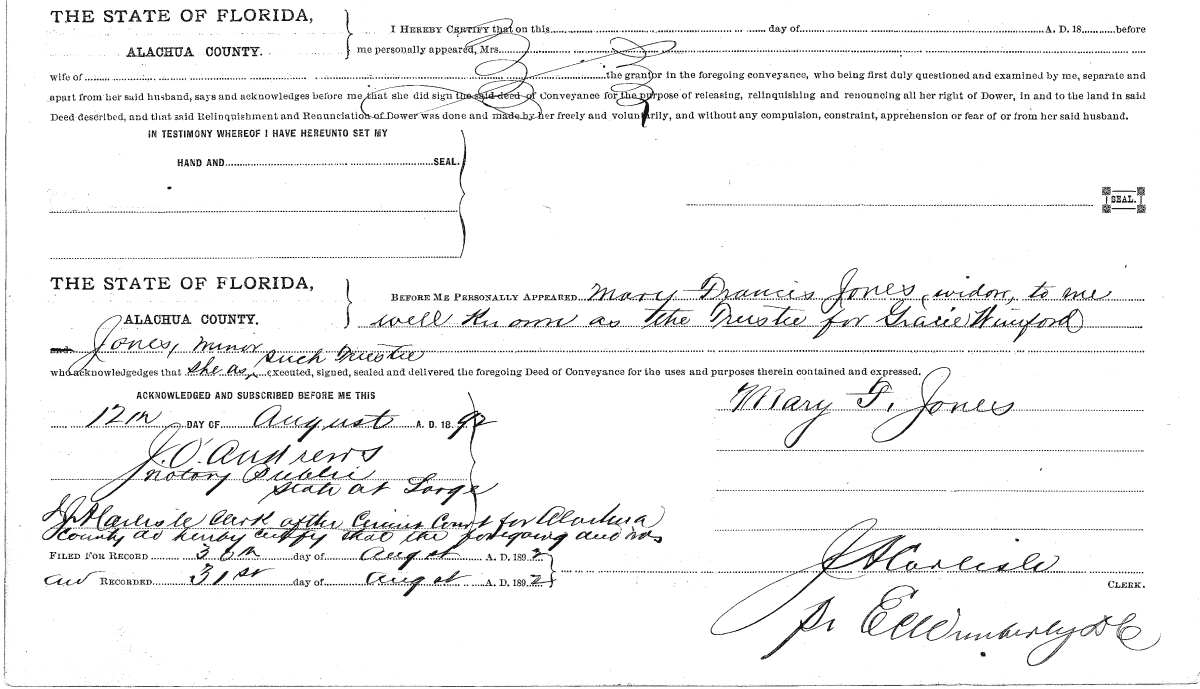 THE STATE OF FLORIDA,
ALACHUA COUNTY.
I HEREBY CERTIFY that on this day of A. D. 18 before
me personally appeared, Mrs.
wife of the grantor in the foregoing conveyance, who being first duly questioned and examined by me, separate and
apart from her said husband, says and acknowledges before me that she did sign the said deed of Conveyance for the purpose of releasing, relinquishing and renouncing all her right of Dower, in and to the land in said
Deed described, and that said Relinquishment and Renunciation of Dower was done and made by her freely and voluntarily, and without any compulsion, constraint, apprehension or fear of or from her said husband.
IN TESTIMONY WHEREOF I HAVE HEREUNTO SET MY
HAND AND SEAL.
SEAL.
THE STATE OF FLORIDA,
ALACHUA COUNTY.
BEFORE ME PERSONALLY APPEARED Mary Francis Jones, widow, to me
well Known as the Trustee for Gracie Winford
and Jones, minor
such Trustee
who acknowledges that she as, executed, signed, sealed and delivered the foregoing Deed of Conveyance for the uses and purposes therein contained and expressed.
ACKNOWLEDGED AND SUBSCRIBED BEFORE ME THIS
12th DAY OF August A. D. 18 92
Mary F. Jones
J. O. Andrews
Notary Public
State at Large
I J A Carlisle Clerk of the Circuit Court for Alachua
County do hereby certify that the foregoing deed was
FILED FOR RECORD 30th day of August A. D. 1892
and RECORDED 31st day of August A. D. 1892
J A Carlisle
CLERK.
pr E C Wimberly D C